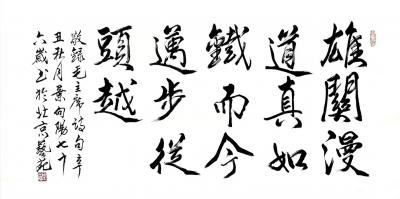 雄關漫
道真如
鐵而今
邁步從
頭越
敬録毛主席詩句辛
丑秋月葉向陽七十
六歲书於北京藝苑